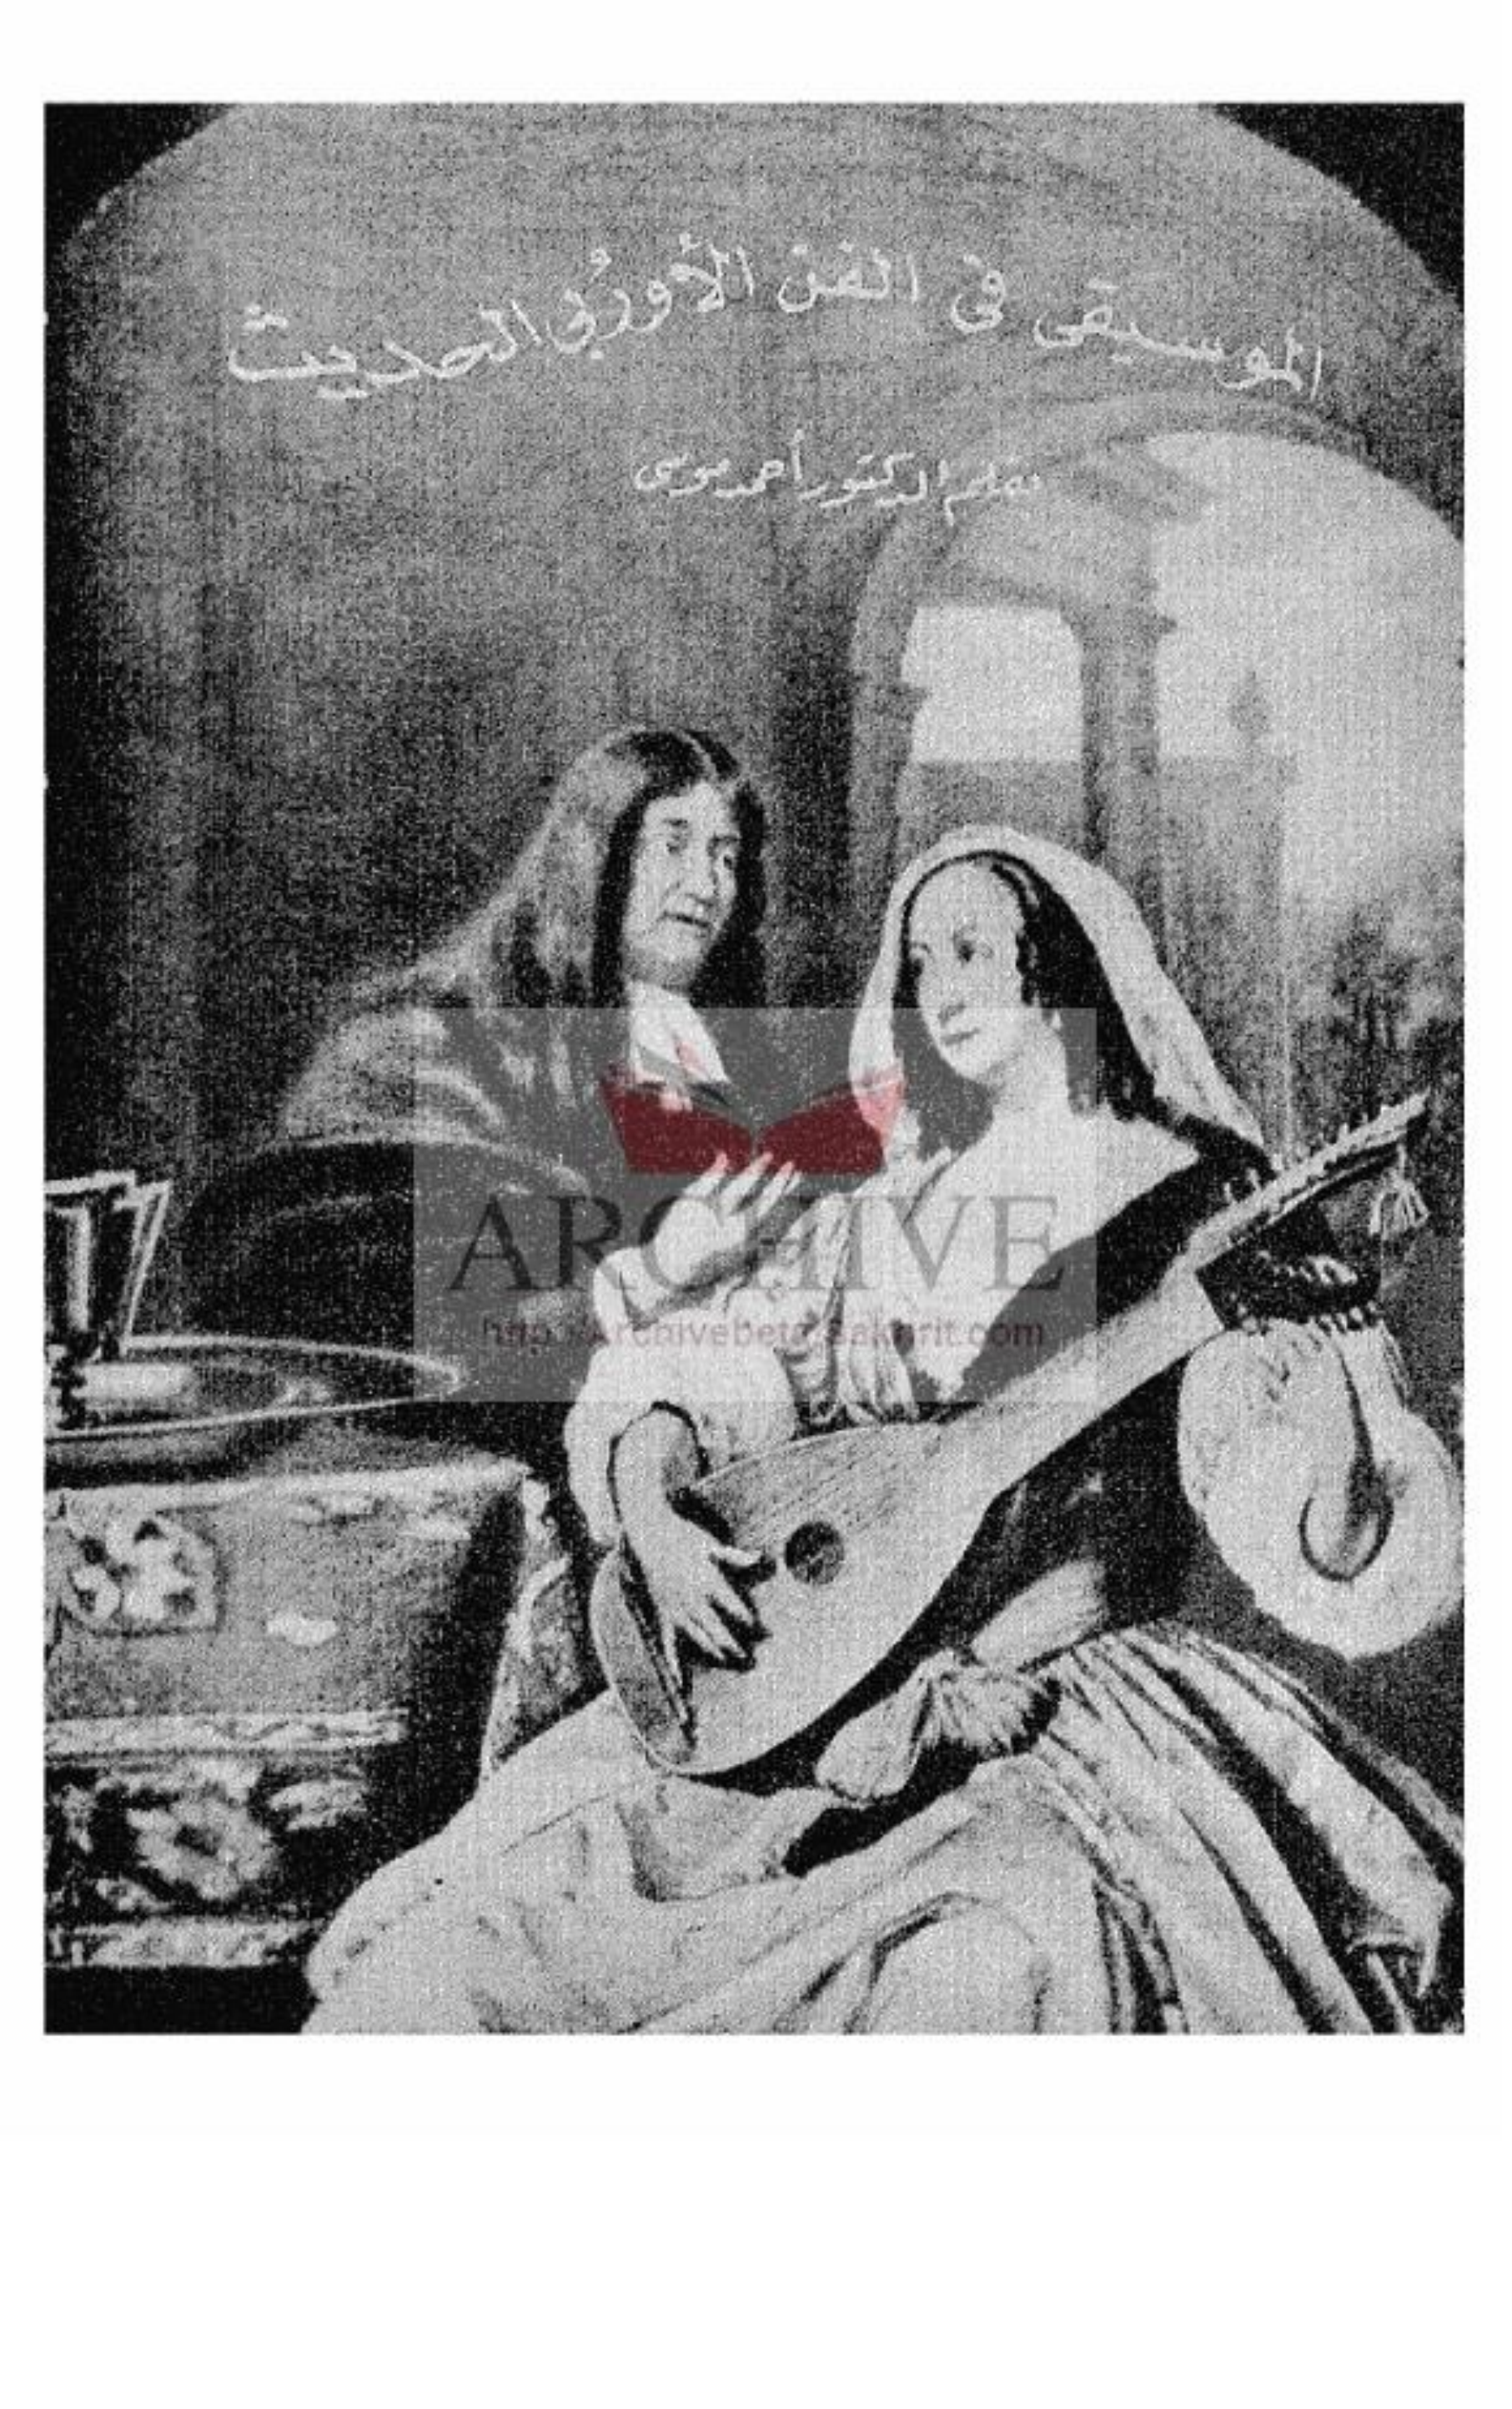 الموسيقى في الفن الأوربي الحديث
بقلم الدكتور أحمد موسى
ARCHIVE
http://Archivebeta.Sakhrit.com